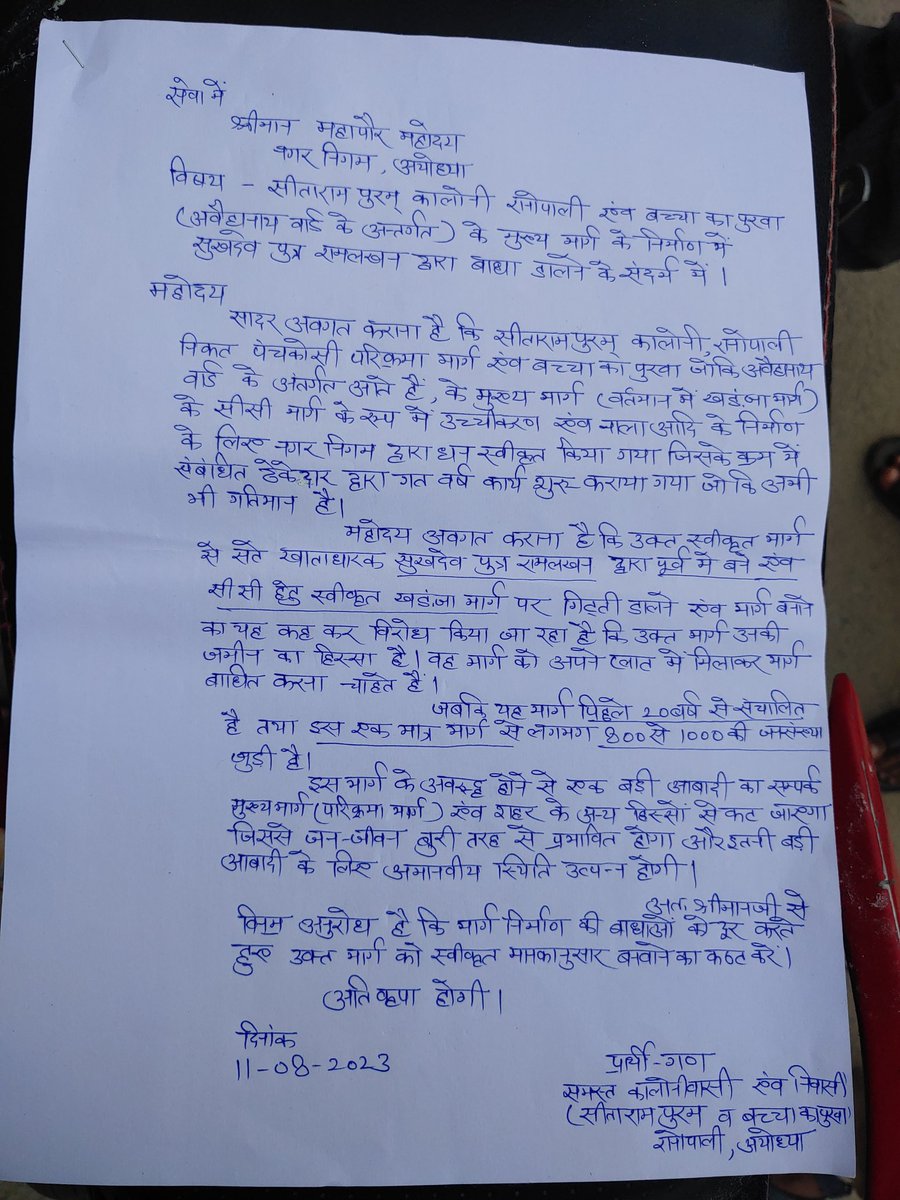 सेवा में
श्रीमान महापौर महोदय
नगर निगम, अयोध्या
विषय - सीताराम पुरम् कालोनी रानोपाली एंव बच्चा का पुरवा
(अवैद्यनाथ वार्ड के अन्तर्गत) के मुख्य मार्ग के निर्माण में
सुखदेव पुत्र रामलखन द्वारा बाधा डालने के संदर्भ में ।
महोदय
सादर अवगत कराना है कि सीताराम पुरम् कालोनी, रानोपाली
निकट पंचकोसी परिक्रमा मार्ग एंव बच्चा का पुरवा जोकि अवैद्यनाथ
वार्ड के अंतर्गत आते हैं, के मुख्य मार्ग (वर्तमान में खड़ंजा मार्ग)
के सीसी मार्ग के रूप में उच्चीकरण एंव नाला आदि के निर्माण
के लिए नगर निगम द्वारा धन स्वीकृत किया गया जिसके क्रम में
संबंधित ठेकेदार द्वारा गत वर्ष कार्य शुरू कराया गया जो कि अभी
भी गतिमान है।
महोदय अवगत कराना है कि उक्त स्वीकृत मार्ग
से सटे खाताधारक सुखदेव पुत्र रामलखन द्वारा पूर्व में बने एंव
सी सी हेतु स्वीकृत खड़ंजा मार्ग पर गिट्टी डालने एंव मार्ग बनाने
का यह कह कर विरोध किया जा रहा है कि उक्त मार्ग उनकी
जमीन का हिस्सा है। वह मार्ग को अपने प्लाट में मिलाकर मार्ग
बाधित करना चाहते हैं।
जबकि यह मार्ग पिछले 20 वर्ष से संचालित
है तथा इस एक मात्र मार्ग से लगभग 800 से 1000 की जनसंख्या
जुड़ी है।
इस मार्ग के अवरुद्ध होने से एक बड़ी आबादी का सम्पर्क
मुख्य मार्ग (परिक्रमा मार्ग) एंव शहर के अन्य हिस्सों से कट जाएगा
जिससे जन-जीवन बुरी तरह से प्रभावित होगा और इतनी बड़ी
आबादी के लिए अमानवीय स्थिति उत्पन्न होगी।
अतः श्रीमानजी से
विनम्र अनुरोध है कि मार्ग निर्माण की बाधाओं को दूर करते
हुए उक्त मार्ग को स्वीकृत मानकानुसार बनवाने का कष्ट करें।
अति कृपा होगी।
दिनांक
11-08-2023
प्रार्थी-गण
समस्त कालोनीवासी एंव निवासी
(सीताराम पुरम व बच्चा का पुरवा)
रानोपाली, अयोध्या